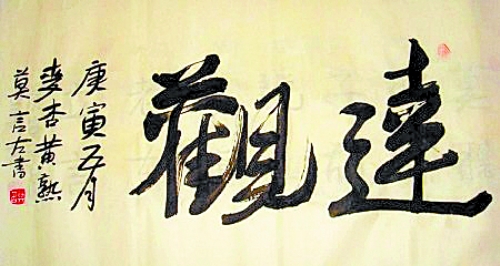 達觀
庚寅五月
麥杏黃熟
莫言左書